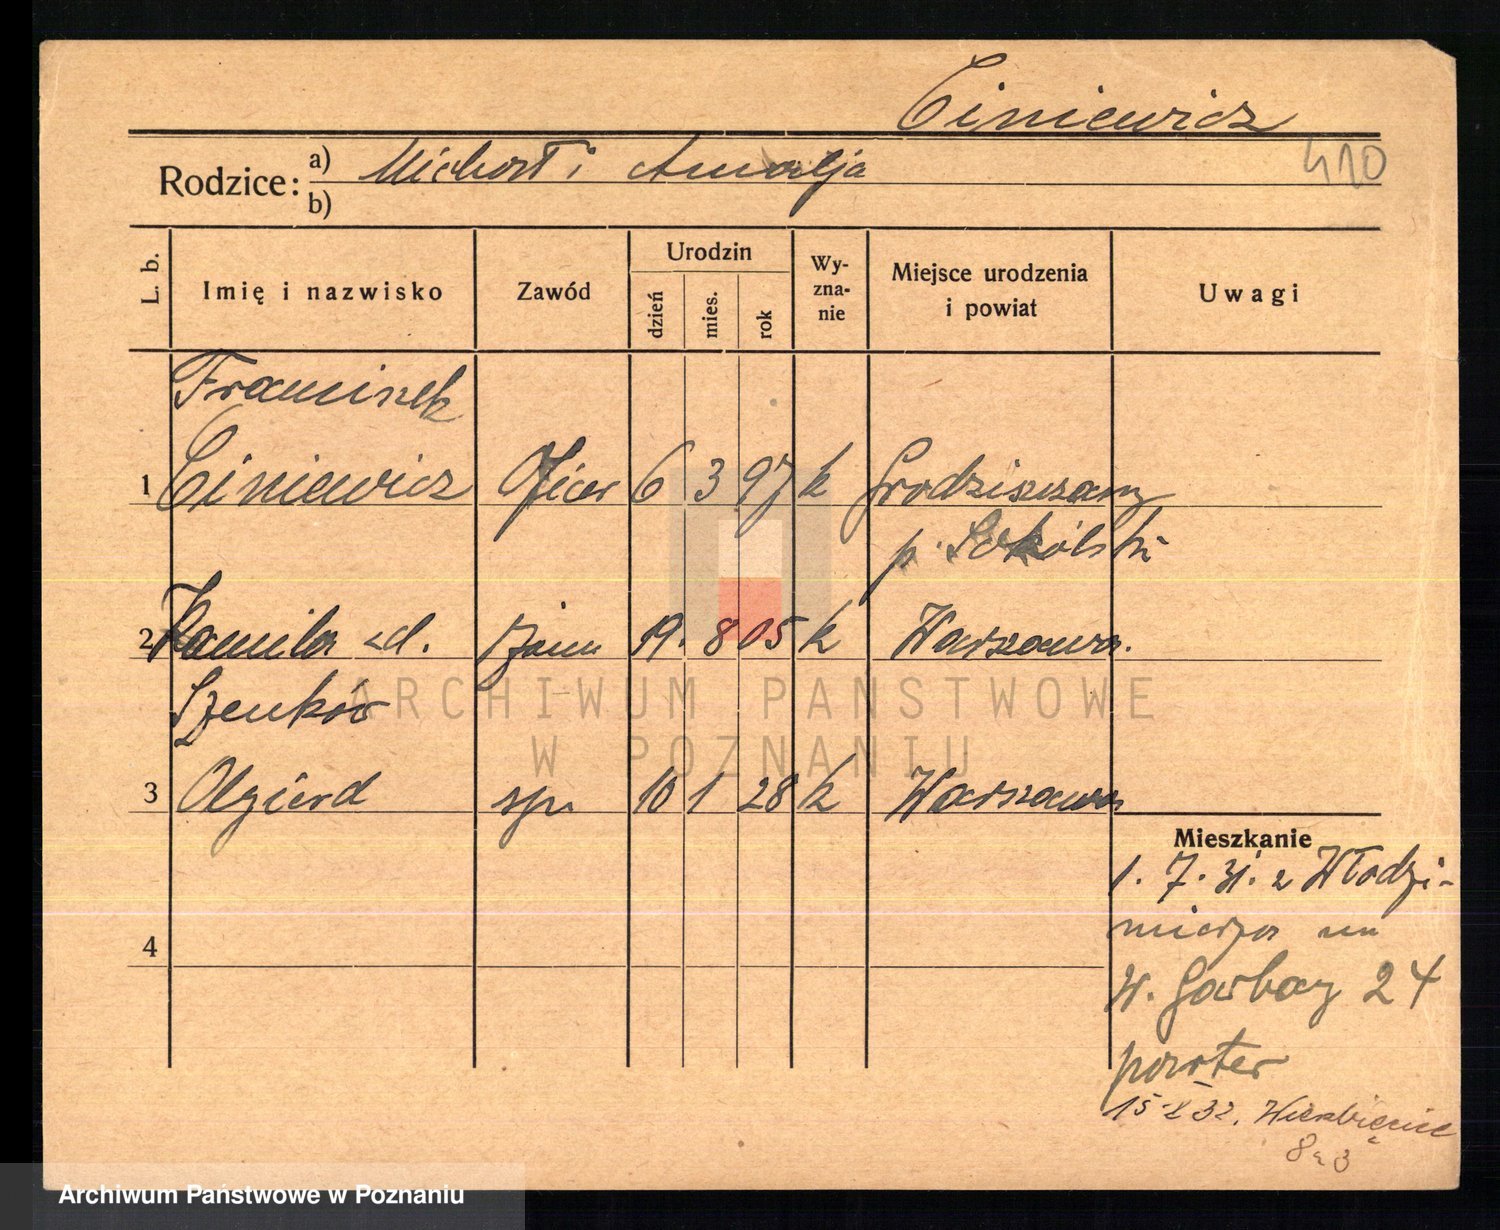 Ciniewicz
410
Rodzice: a) Michał i Amalja
b)
L. b. Imię i nazwisko Zawód Urodzin dzień mies. rok Wy-zna-nie Miejsce urodzenia i powiat Uwagi
Franciszek
1 Ciniewicz Oficer 6 3 97 k Grodziszczany
p. Sokólski
2 Kamila zd. żona 19. 8 05 k Warszawa.
Szenków
3 Olgierd syn 10 1 28 k Warszawa
Mieszkanie
1. 7. 31. z Włodzi-
mierza na
W. Garbary 24
parter
4
15 X 32. Wierzbięcice
8 m 3
ARCHIWUM PAŃSTWOWE
W POZNANIU
Archiwum Państwowe w Poznaniu